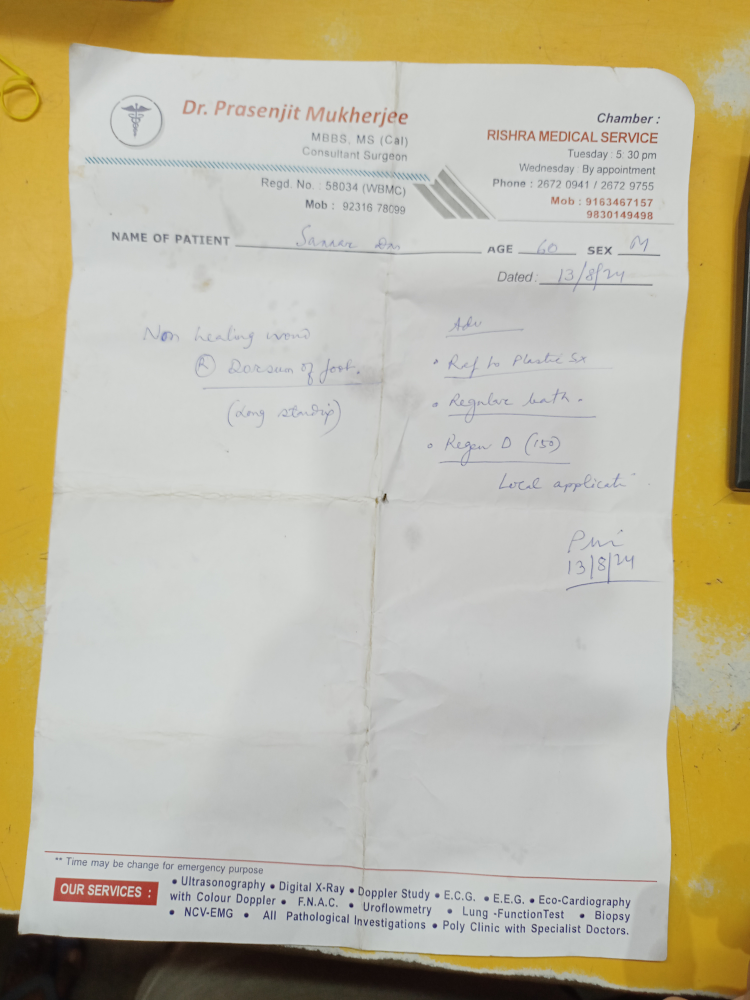 Dr. Prasenjit Mukherjee
MBBS, MS (Cal)
Consultant Surgeon
Regd. No. : 58034 (WBMC)
Mob : 92316 78099
Chamber :
RISHRA MEDICAL SERVICE
Tuesday : 5: 30 pm
Wednesday : By appointment
Phone : 2672 0941 / 2672 9755
Mob : 9163467157
9830149498
NAME OF PATIENT AGE 60 SEX M
Dated: 13/8/24
Non healing
(R) Dorsum of foot.
(Long standing)
Adv
• Ref to Plastic Sx
• Regular bath.
• Regen D (150)
Local applicati
13/8/24
** Time may be change for emergency purpose
OUR SERVICES :
• Ultrasonography • Digital X-Ray • Doppler Study • E.C.G. • E.E.G. • Eco-Cardiography
with Colour Doppler • F.N.A.C. • Uroflowmetry • Lung -FunctionTest • Biopsy
• NCV-EMG • All Pathological Investigations • Poly Clinic with Specialist Doctors.